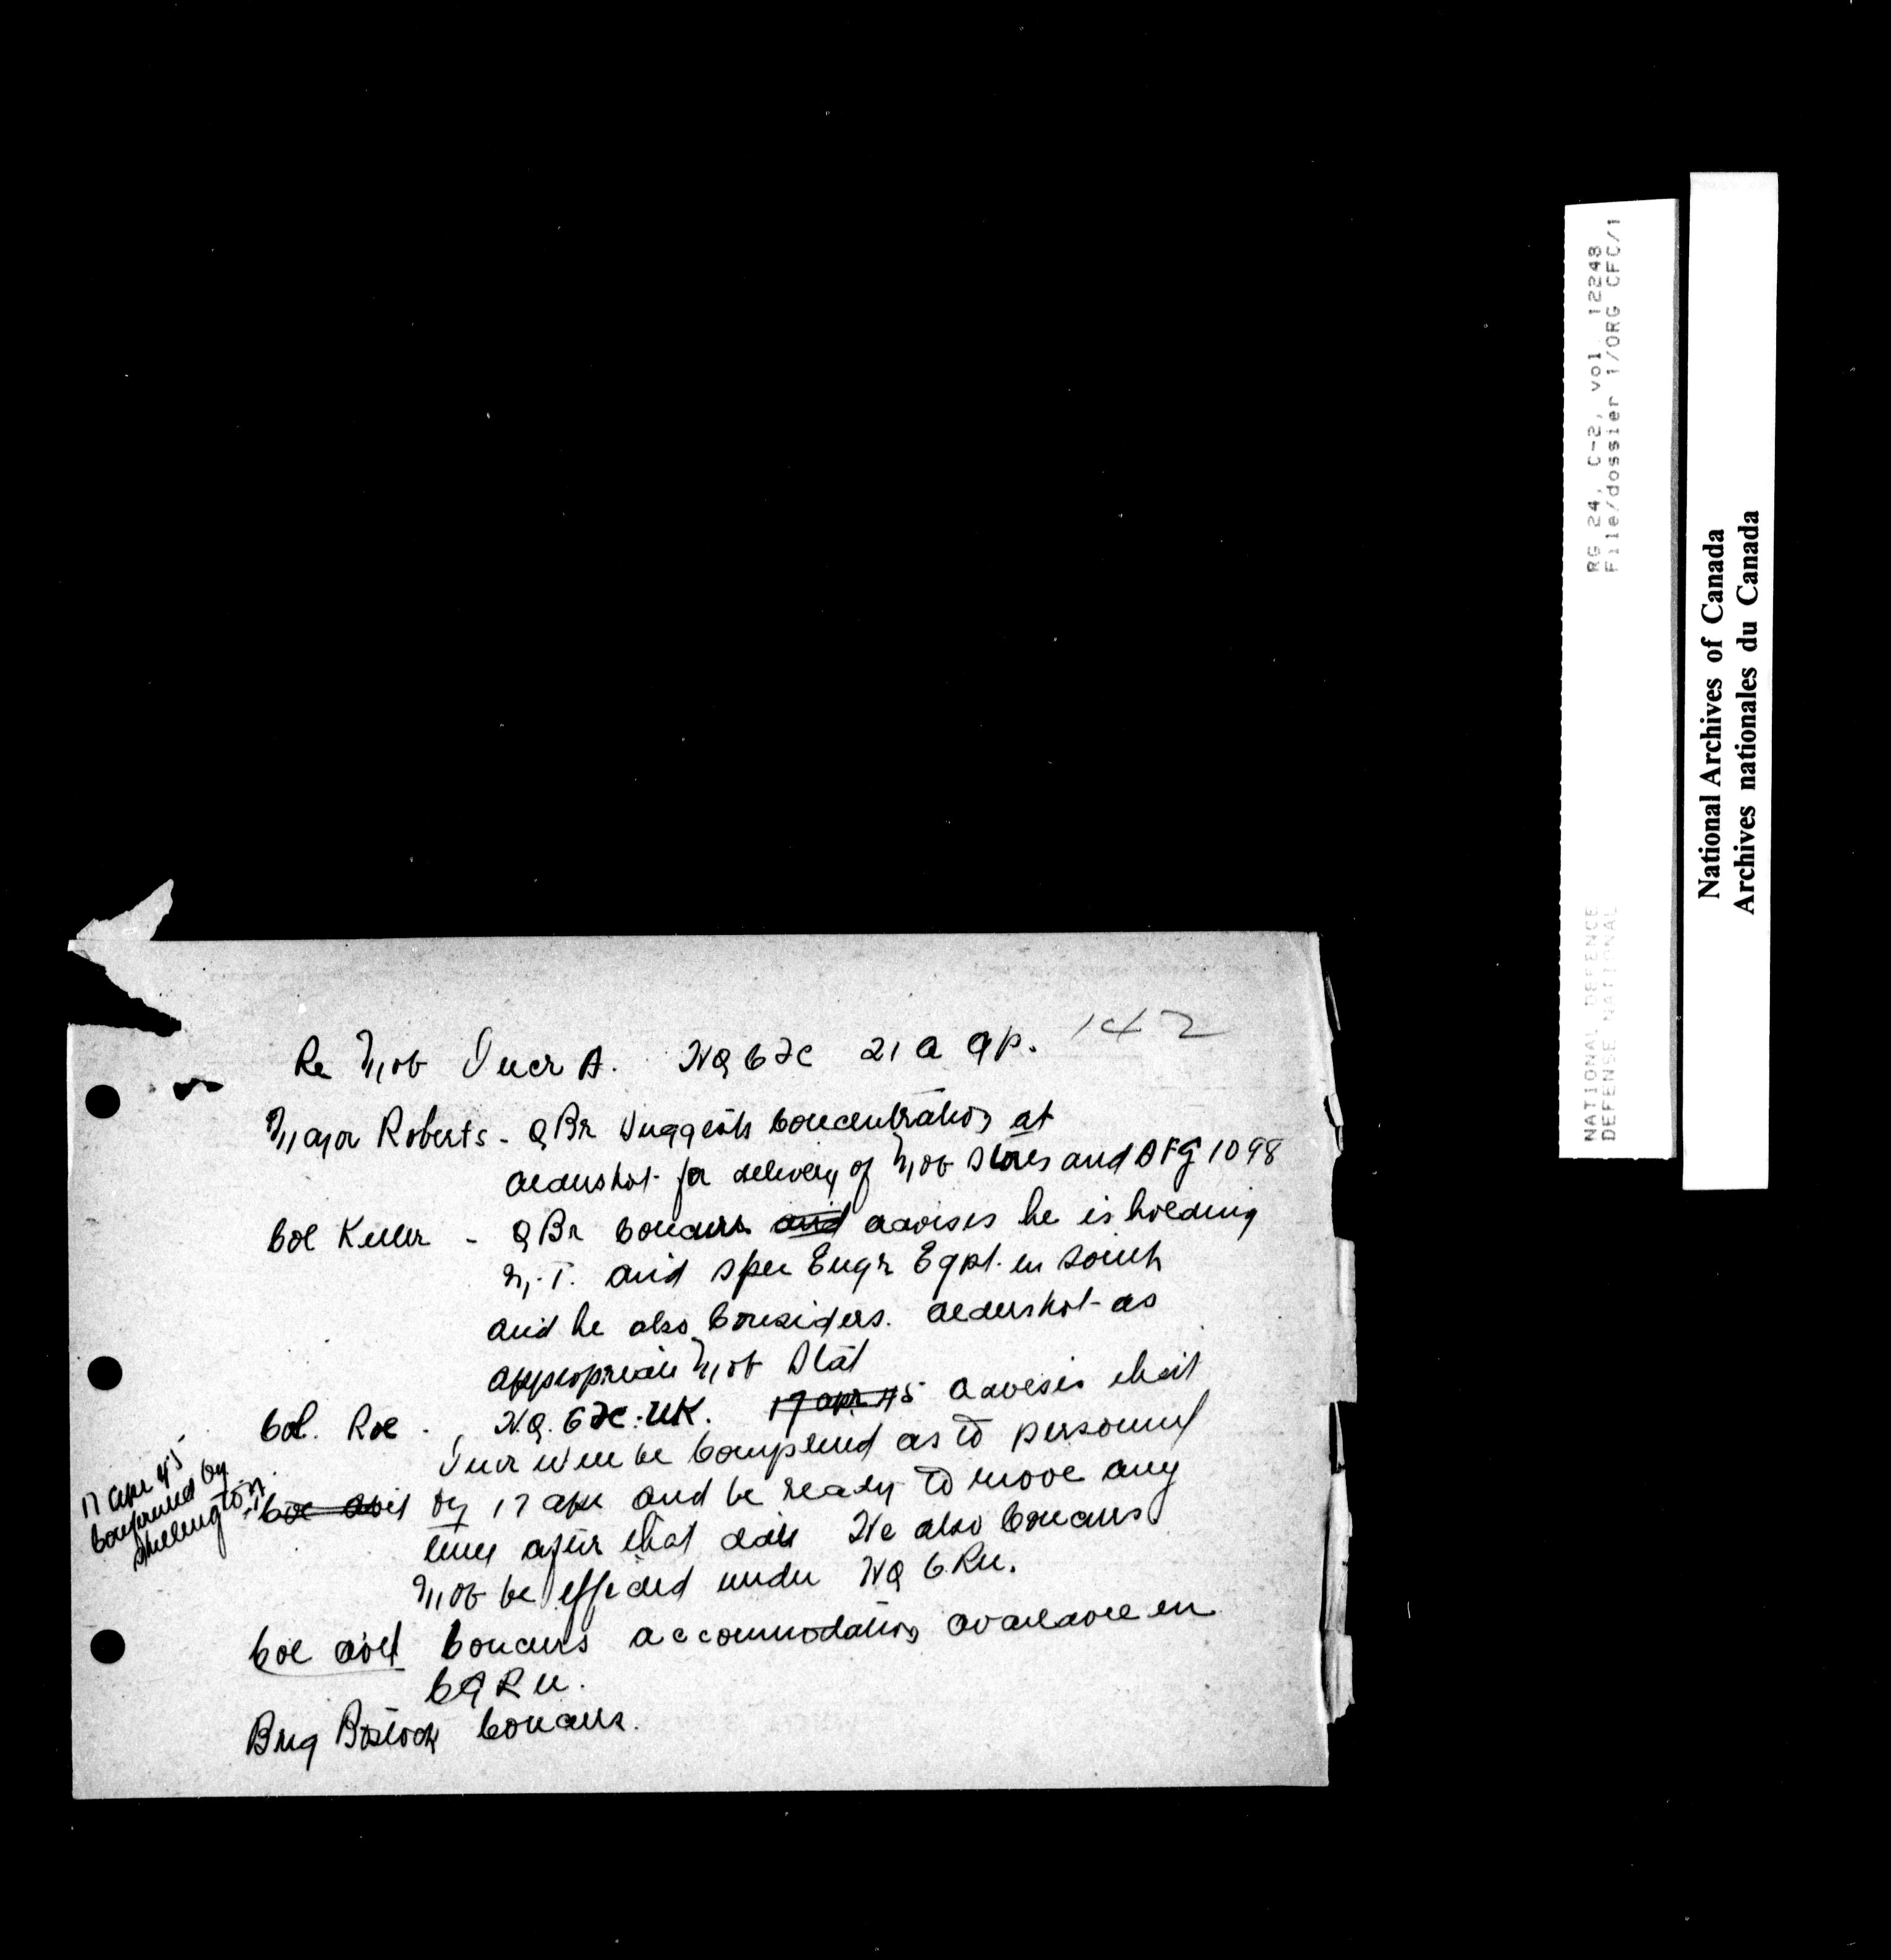 Re Mob Incr A. HQ CFC 21 A Gp. 142
Major Roberts - Q Br suggests concentration at
Aldershot for delivery of Mob Stores and AFG 1098
Col Keller - Q Br concurs and advises he is holding
M.T. and spec Engr Eqpt. in south
and he also considers. Aldershot as
appropriate Mob Stat
Col. Roe. H.Q. CFC. UK. 17 Apr 45 advises that
Incr will be completed as to personnel
by 17 Apr and be ready to move any
time after that date He also concurs
Mob be effected under HQ CRU.
17 Apr 45
Confirmed by
Skellington
Col concurs accommodation available in
CGRU.
Brig Bostock concurs.
NATIONAL DEFENCE RG 24, C-2, vol. 12248
DEFENSE NATIONAL File/dossier 1/ORG CFC/1
National Archives of Canada
Archives nationales du Canada